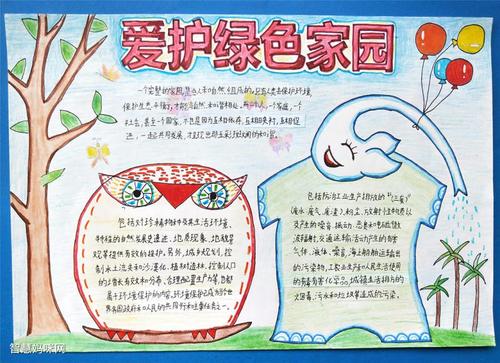 爱护绿色家园
一个完整的家园是由人和自然组成的，只有人类去保护环境，
保护生态平衡了，才能与自然和谐相处。每个人，一个家庭，一个
社会，甚至一个国家，不也是因为互相依存，互相关爱，互相促
进，一起共同发展，才
包括对珍稀物种及其生活环境、
特殊的自然发展史遗迹、地质现象、地貌景
观等提供有效的保护。另外，城乡规划，控
制水土流失和沙漠化、植树造林、控制人口
的增长和分布、合理配置生产力等，都
属于环境保护的内容。环境保护已成为当今世
界各国政府和人民的共同行动和主要任务之一。
包括防治工业生产排放的“三废”
（废水、废气、废渣）、粉尘、放射性物质以
及产生的噪音、振动、恶臭和电磁微
波辐射，交通运输活动产生的有害
气体、液体、噪音，海上船舶运输排出
的污染物，工农业生产和人民生活使用
的有毒有害化学品，城镇生活排放的
烟尘、污水和垃圾等造成的污染。
智慧妈咪网